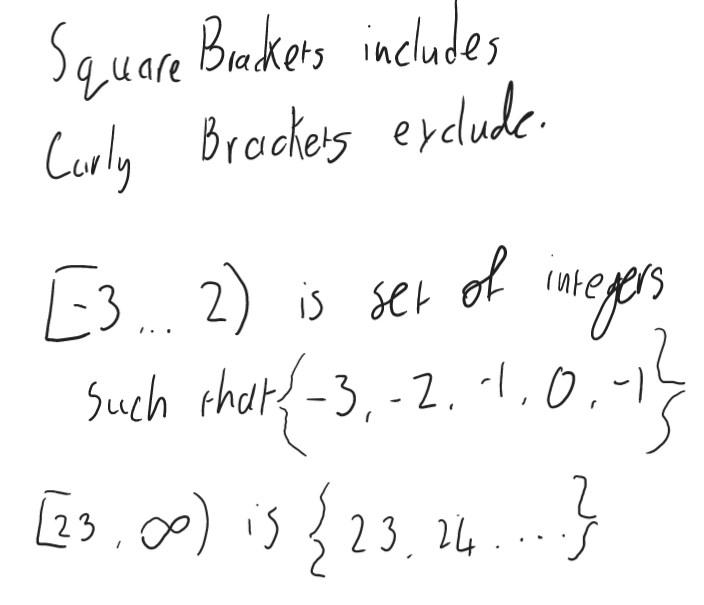 Square Brackets includes
Curly Brackets exclude.
[-3... 2) is set of integers
such that {-3, -2, -1, 0, -1}
[23, ∞) is {23, 24....}